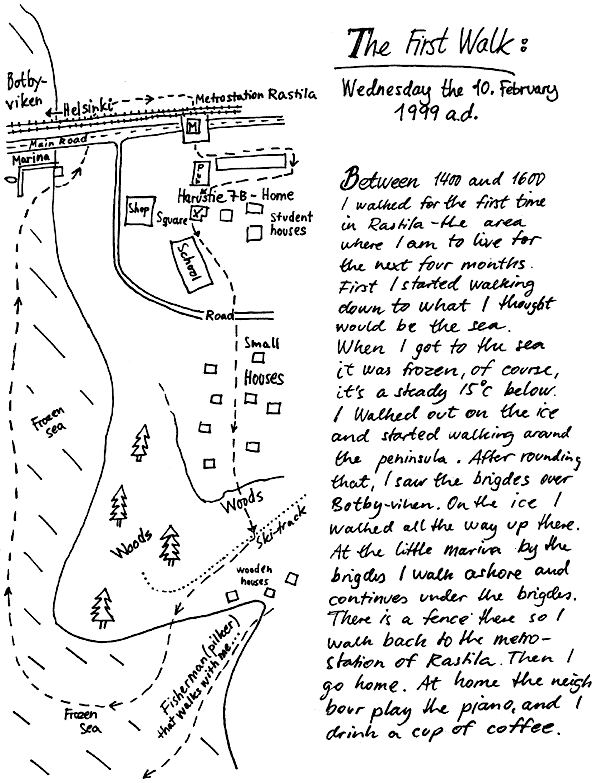 The First Walk:
Wednesday the 10. February
1999 a.d.
Between 1400 and 1600
I walked for the first time
in Rastila - the area
where I am to live for
the next four months.
First I started walking
down to what I thought
would be the sea.
When I got to the sea
it was frozen, of course,
it's a steady 15°c below.
I walked out on the ice
and started walking around
the peninsula. After rounding
that, I saw the brigdes over
Botby-viken. On the ice I
walked all the way up there.
At the little marina by the
brigdes I walk ashore and
continues under the brigdes.
There is a fence there so I
walk back to the metro-
station of Rastila. Then I
go home. At home the neigh
bour play the piano, and I
drink a cup of coffee.
Botby-
viken
Helsinki
Metrostation Rastila
M
Main Road
Marina
Pub
Harustie 7B - Home
Shop
Square
X
Student
houses
School
Road
Small
Houses
Frozen
sea
Woods
Ski-track
Woods
wooden
houses
Fisherman (pilker)
that walks with me...
Frozen
Sea